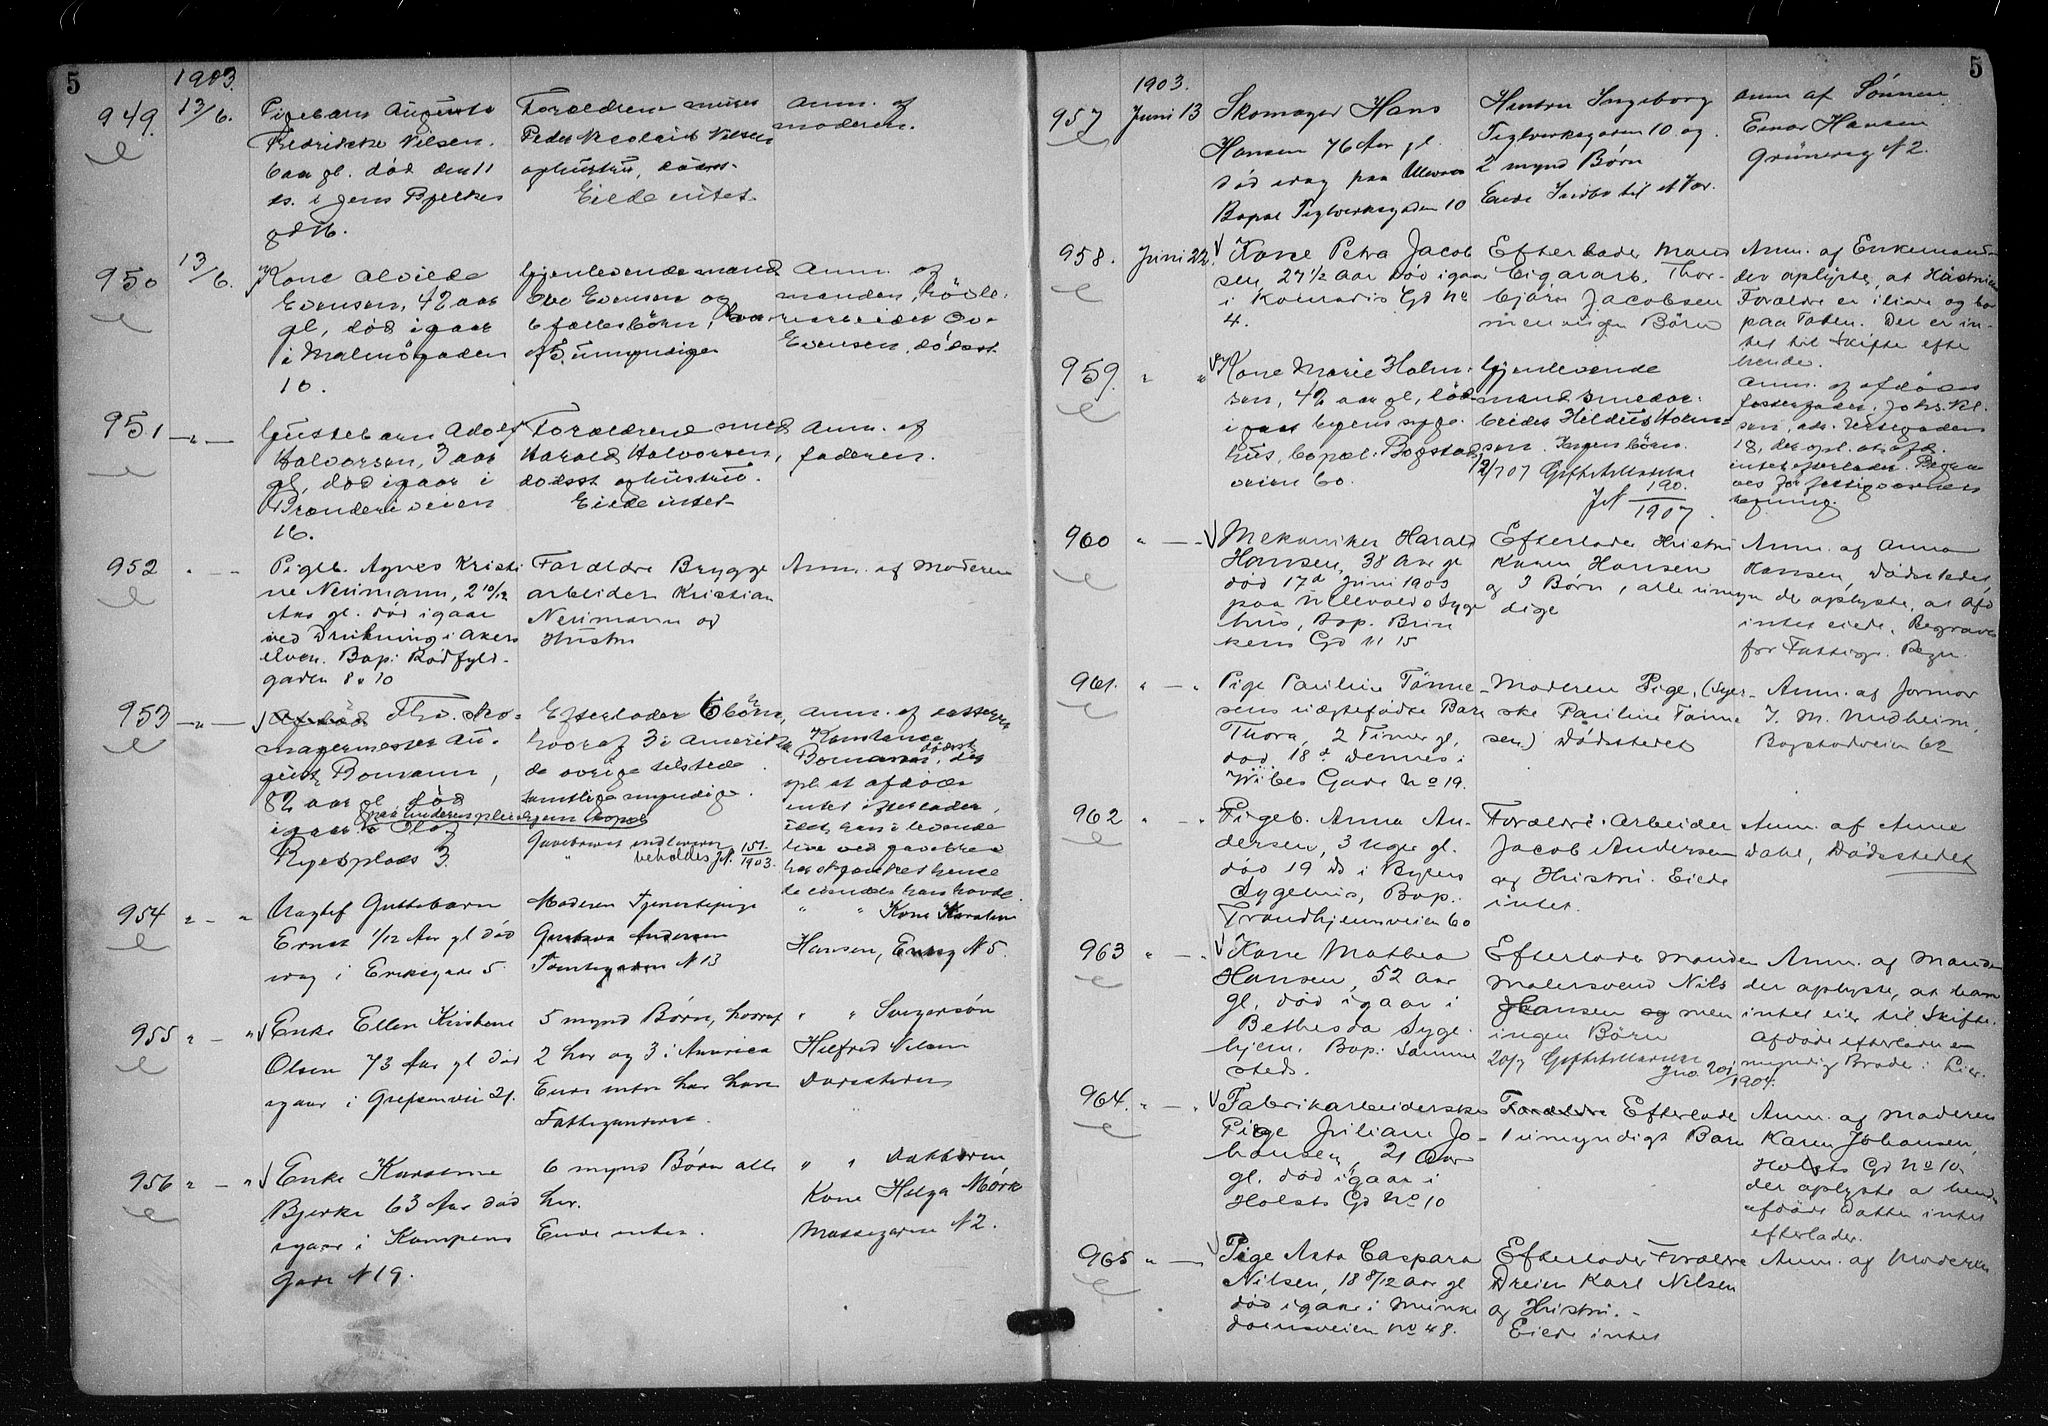 5
1903.
949.
13/6.
Pigebarn Augusta
Fredrikke Nilsen.
6 aar gl. død den 11
ds. i Jens Bjelkes
gd 16.
Forældrene
Peder Nicolai Nilsen
og hustru, dødsst.
Eiede intet.
Anm. af
moderen.
950
13/6.
Kone Alvilde
Evensen, 42 aar
gl, død igaar
i Malmögaden
10.
Gjenlevende mand
Ove Evensen og
6 fællesbörn, hvor
af 5 umyndige
Anm. af
manden,
Ove
Evensen, dødsst
951
— " —
Guttebarn Adolf
Halvorsen, 3 aar
gl, død igaar i
Brænderiveien
16.
Forældrene
Harald Halvorsen,
dødsst og hustru.
Eiede intet
Anm. af
faderen.
952
" —
Pigeb. Agnes Kristi
ne Neumann, 2 10/12
Aar gl. död igaar
ved Drukning i Akers
elven. Bop: Rødfyld-
gaden 8 & 10
Forældre Brygge
arbeider Kristian
Neumann og
Hustru
Anm. af Moderen
953
— " —
Fhv. Sko-
magermester Au-
gust Bomann,
82 aar gl, död
paa bopæl
igaar Olaf
Ryesplads 3.
Efterlader 6 börn,
hvoraf 3 i Amerika
de øvrige tilstede
samtlige myndige.
Gavebrevet indleveret
" beholdes J.N. 151/1903.
Anm. af datteren
Konstance
Bomann, dødsst
opl. at afdöde
intet efterlader,
idet han i levende
live ved gavebrev
har skjænket hende
de eiendele han havde.
954
" — "
Uægtef Guttebarn
Ernst 1/12 Aar gl död
idag i Eriksgade 5
Moderen Tjenestepige
Gustava Andersen
Tomtegaden N 13
" " Kone Karoline
Hansen, Eriksg N 5.
955
" — "
Enke Ellen Kirstine
Olsen 73 Aar gl död
igaar i Grefsenvei 21.
5 mynd Børn, hvoraf
2 her og 3 i America
Eiede intet har havt
Fattigunderst.
" " Svigersön
Hilfred Nilsen
Dødsstedet
956
" — "
Enke Karoline
Bjerke 63 Aar död
igaar i Kampens
Gade N 19.
6 mynd Børn alle
her.
Eiede intet.
" " Datteren
Kone Helga Mörk
N 2.
5
1903.
957
Juni 13
Skomager Hans
Hansen 76 Aar gl.
död idag paa Ullevaal
Bopæl Teglverksgaden 10
Hustru Ingeborg
Teglverksgaden 10 og
2 mynd Børn
Eiede Indbo til
Anm af Sönnen
Einar Hansen
Grünersg N 2.
958.
Juni 22.
Kone Petra Jacob
sen, 27 1/2 Aar död igaar
i Konradis Gd No
4.
Efterlader Mand
Cigararb. Thor-
björn Jacobsen
men ingen Börn
Anm. af Enkemanden
der oplyste, at Hustruens
Forældre er ilive og bor
paa Toten. Der er in-
tet til Skifte efter
hende.
959.
" "
Kone Marie Holm-
sen, 42 aar gl, död
igaar Byens syge-
hus, bopæl: Bogstad
veien 60.
Gjenlevende
mand smedar-
beider Hildeus Holm-
sen. Ingen börn.
2/7 07 Gifteattest
J.N. 190./1907.
Anm. af afdödes
fosterfader, Johs. Ol-
sen, adr.
18, der opl. at afd.
intet efterlader. Begra-
ves for fattigvæsenets
regning.
960
" — "
Mekaniker Harald
Hansen, 38 Aar gl
død 17d Juni 1903
paa Ullevaals Syge
hus, Bop. Brin
kens Gd N 15
Efterlader Hustru
Karen Hansen
og 3 Börn, alle umyn
dige
Anm. af Anna
Hansen, Dödsstedet,
der oplyste, at Afd
intet eiede. Begraves
for Fattigv. Regn.
961.
" — "
Pige Pauline Tönne-
sens uægtefödte Barn
Thora, 2 Timer gl,
död 18d dennes i
Wibes Gade No 19.
Moderen Pige, (Syer-
ske Pauline Tönne
sen) Dödsstedet
Anm. af Jormor
J. M. Nudheim,
Bogstadveien 62
962
" — "
Pigeb. Anna An-
dersen, 3 Uger gl.
död 19 ds i Byens
Sygehus, Bop.
Trondhjemsveien 60
Forældre: Arbeider
Jacob Andersen
og Hustru. Eiede
intet.
Anm. af Anne
Dahl, Dödsstedet
963
" — "
Kone Mathea
Hansen, 52 Aar
gl, död igaar i
Bethesda Syge-
hjem. Bop: Samme
steds.
Efterlader Manden
Malersvend Nils
Hansen og men
ingen Börn
20/7 Gifteattest
Jno 201/1904.
Anm. af Manden
der oplyste, at ham
intet eier til Skifte.
Afdöde efterlader en
myndig Broder i Lier.
964.
" — "
Fabrikarbeiderske
Pige Juliane Jo-
hansen, 21 Aar
gl. död igaar i
Holsts Gd No 10
Forældre Efterlader
1 umyndigt Barn
Anm. af Moderen
Karen Johansen,
Holsts Gd No 10
der oplyste at hendes
afdöde Datter intet
efterlader.
965
" — "
Pige Asta Caspara
Nilsen, 18 8/12 aar gl
död igaar i Munke
damsveien No 48.
Efterlader Forældre
Dreier Karl Nilsen
og Hustru. -
Eiede intet
Anm. af Moderen